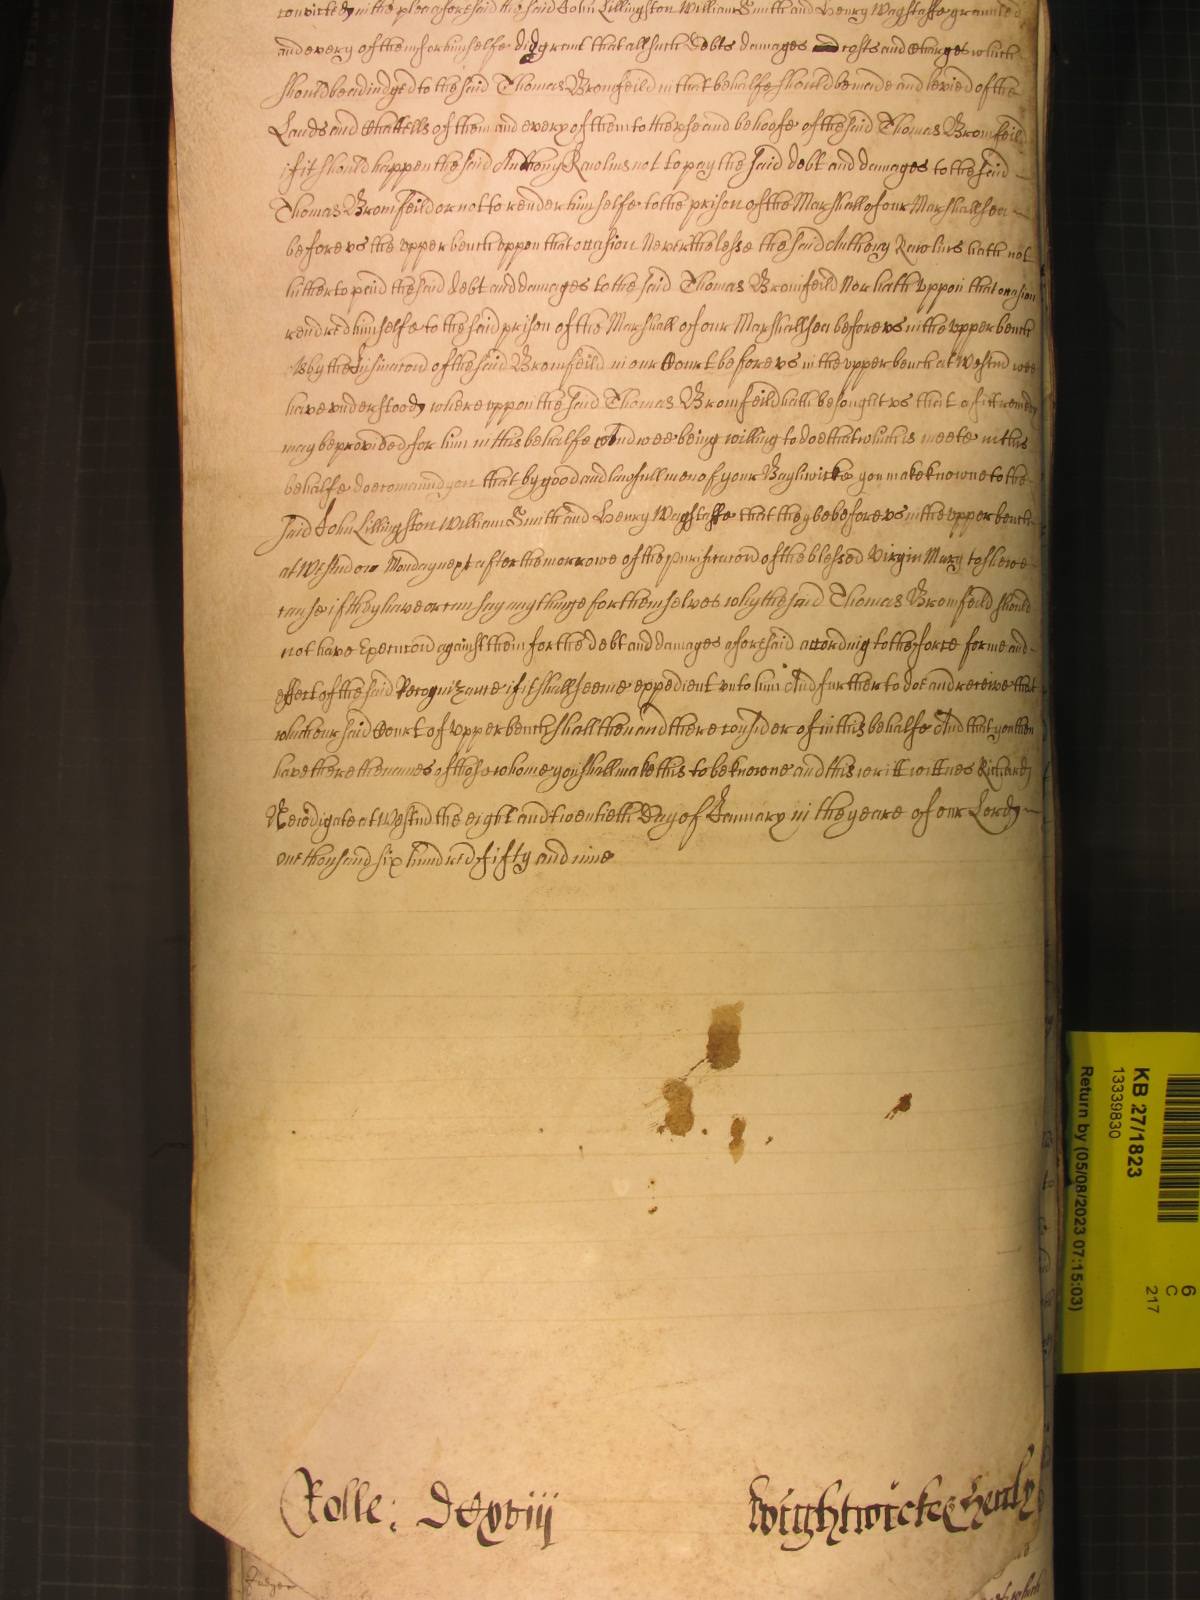 convicted in the plea aforesaid the said John Lillingston William Smith and Henry Wagstaffe graunted
and every of them for himselfe did graunt that all such debts damages and costs and Charges which
should be adiudged to the said Thomas Bromfeild in that behalfe should be made and levied of the
Lands and Chattells of them and every of them to the vse and behoofe of the said Thomas Bromfeild
if it should happen the said Anthony Rawlins not to pay the said debt and damages to the said
Thomas Bromfeild or not to render himselfe to the prison of the Marshall of our Marshallsea
before vs the vpper bench vppon that occasion Neverthelesse the said Anthony Rawlins hath not
hitherto paid the said debt and damages to the said Thomas Bromfeild Nor hath vppon that occasion
rendred himselfe to the said prison of the Marshall of our Marshallsea before vs in the vpper bench
As by the Insinuacon of the said Bromfeild in our Court before vs in the vpper bench at Westmr wee
have vnderstood where vppon the said Thomas Bromfeild hath besought vs that a fitt remedy
may be provided for him in this behalfe And wee being willing to doe that which is meete in this
behalfe doe comaund you that by good and lawfull men of your Bayliwicke you make knowne to the
said John Lillingston William Smith and Henry Wagstaffe that they be before vs in the vpper bench
at Westmr on Monday next after the morrowe of the purificacon of the blessed Virgin Mary to shewe
cause if they have or can say any thinge for themselves why the said Thomas Bromfeild should
not have Execucon against them for the debt and damages aforesaid according to the force forme and
effect of the said Recognizance if it shall seeme expedient vnto him And further to doe and receive that
which our said Court of vpper bench shall then and there consider of in this behalfe And that you then
have there the names of those whome you shall make this to be knowne and this writt wittnes Richard
Newdigate at Westmr the eight and twentieth day of January in the yeare of our Lord
one thousand six hundred fifty and nine
Rolle: DCxviij
Wightwicke Henly
KB 27/1823
13339830
Return by (05/08/2023 07:15:03)
6
C
217